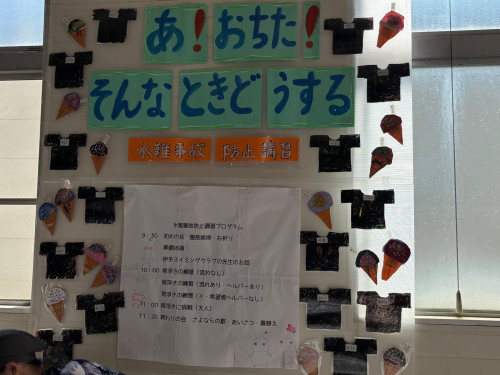 あ！おちた！
そんな ときど うする
水難事故 防止講習
水難事故防止講習プログラム
9：30 初めの会 園長挨拶・お祈り
準備体操
伊予スイミングクラブの先生のお話
10：00 背浮きの練習（流れなし）
背浮きの練習（流れあり・ヘルパーあり）
背浮きの練習（〃・希望者ヘルパーなし）
11：00 背浮きに挑戦（大人）
11：20 終わりの会 さよならの歌・あいさつ 着替え